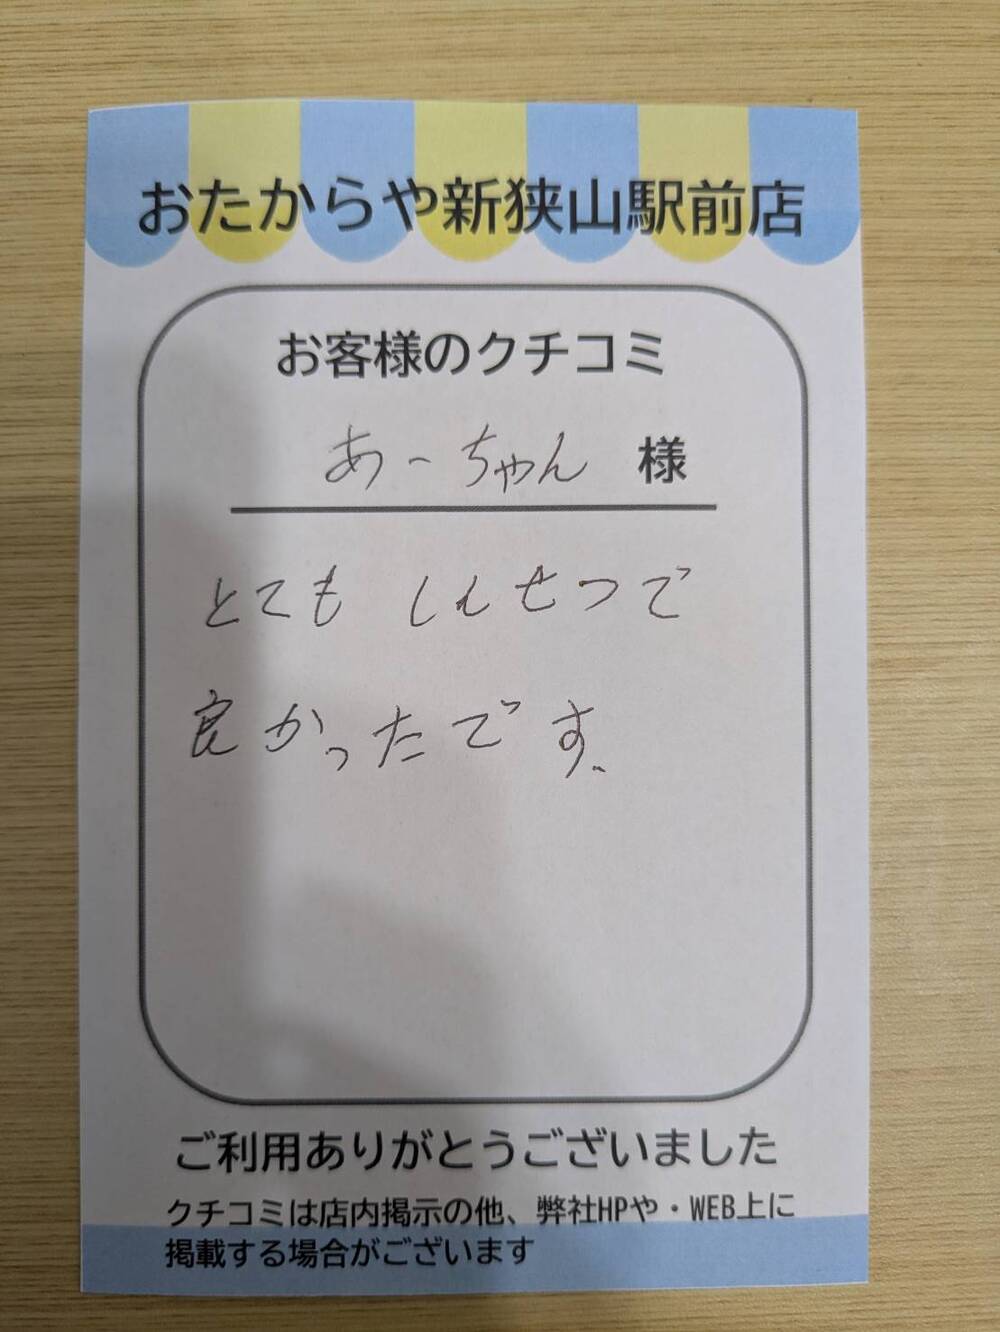 おたからや新狭山駅前店
お客様のクチコミ
あーちゃん 様
とても しんせつで
良かったです、
ご利用ありがとうございました
クチコミは店内掲示の他、弊社HPや・WEB上に
掲載する場合がございます